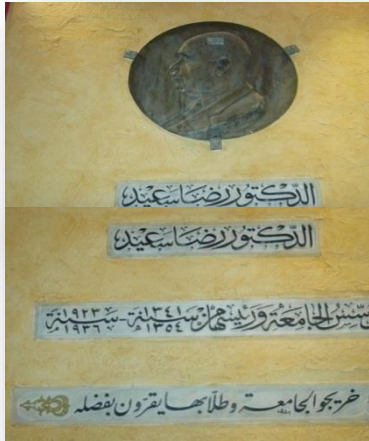 الدكتور رضا سعيد
الدكتور رضا سعيد
مؤسس الجامعة ورئيسها من سنة ١٣٤١ ١٣٥٤ - سنة ١٩٢٣ ١٩٣٦
خريجو الجامعة وطلّابها يقرّون بفضله